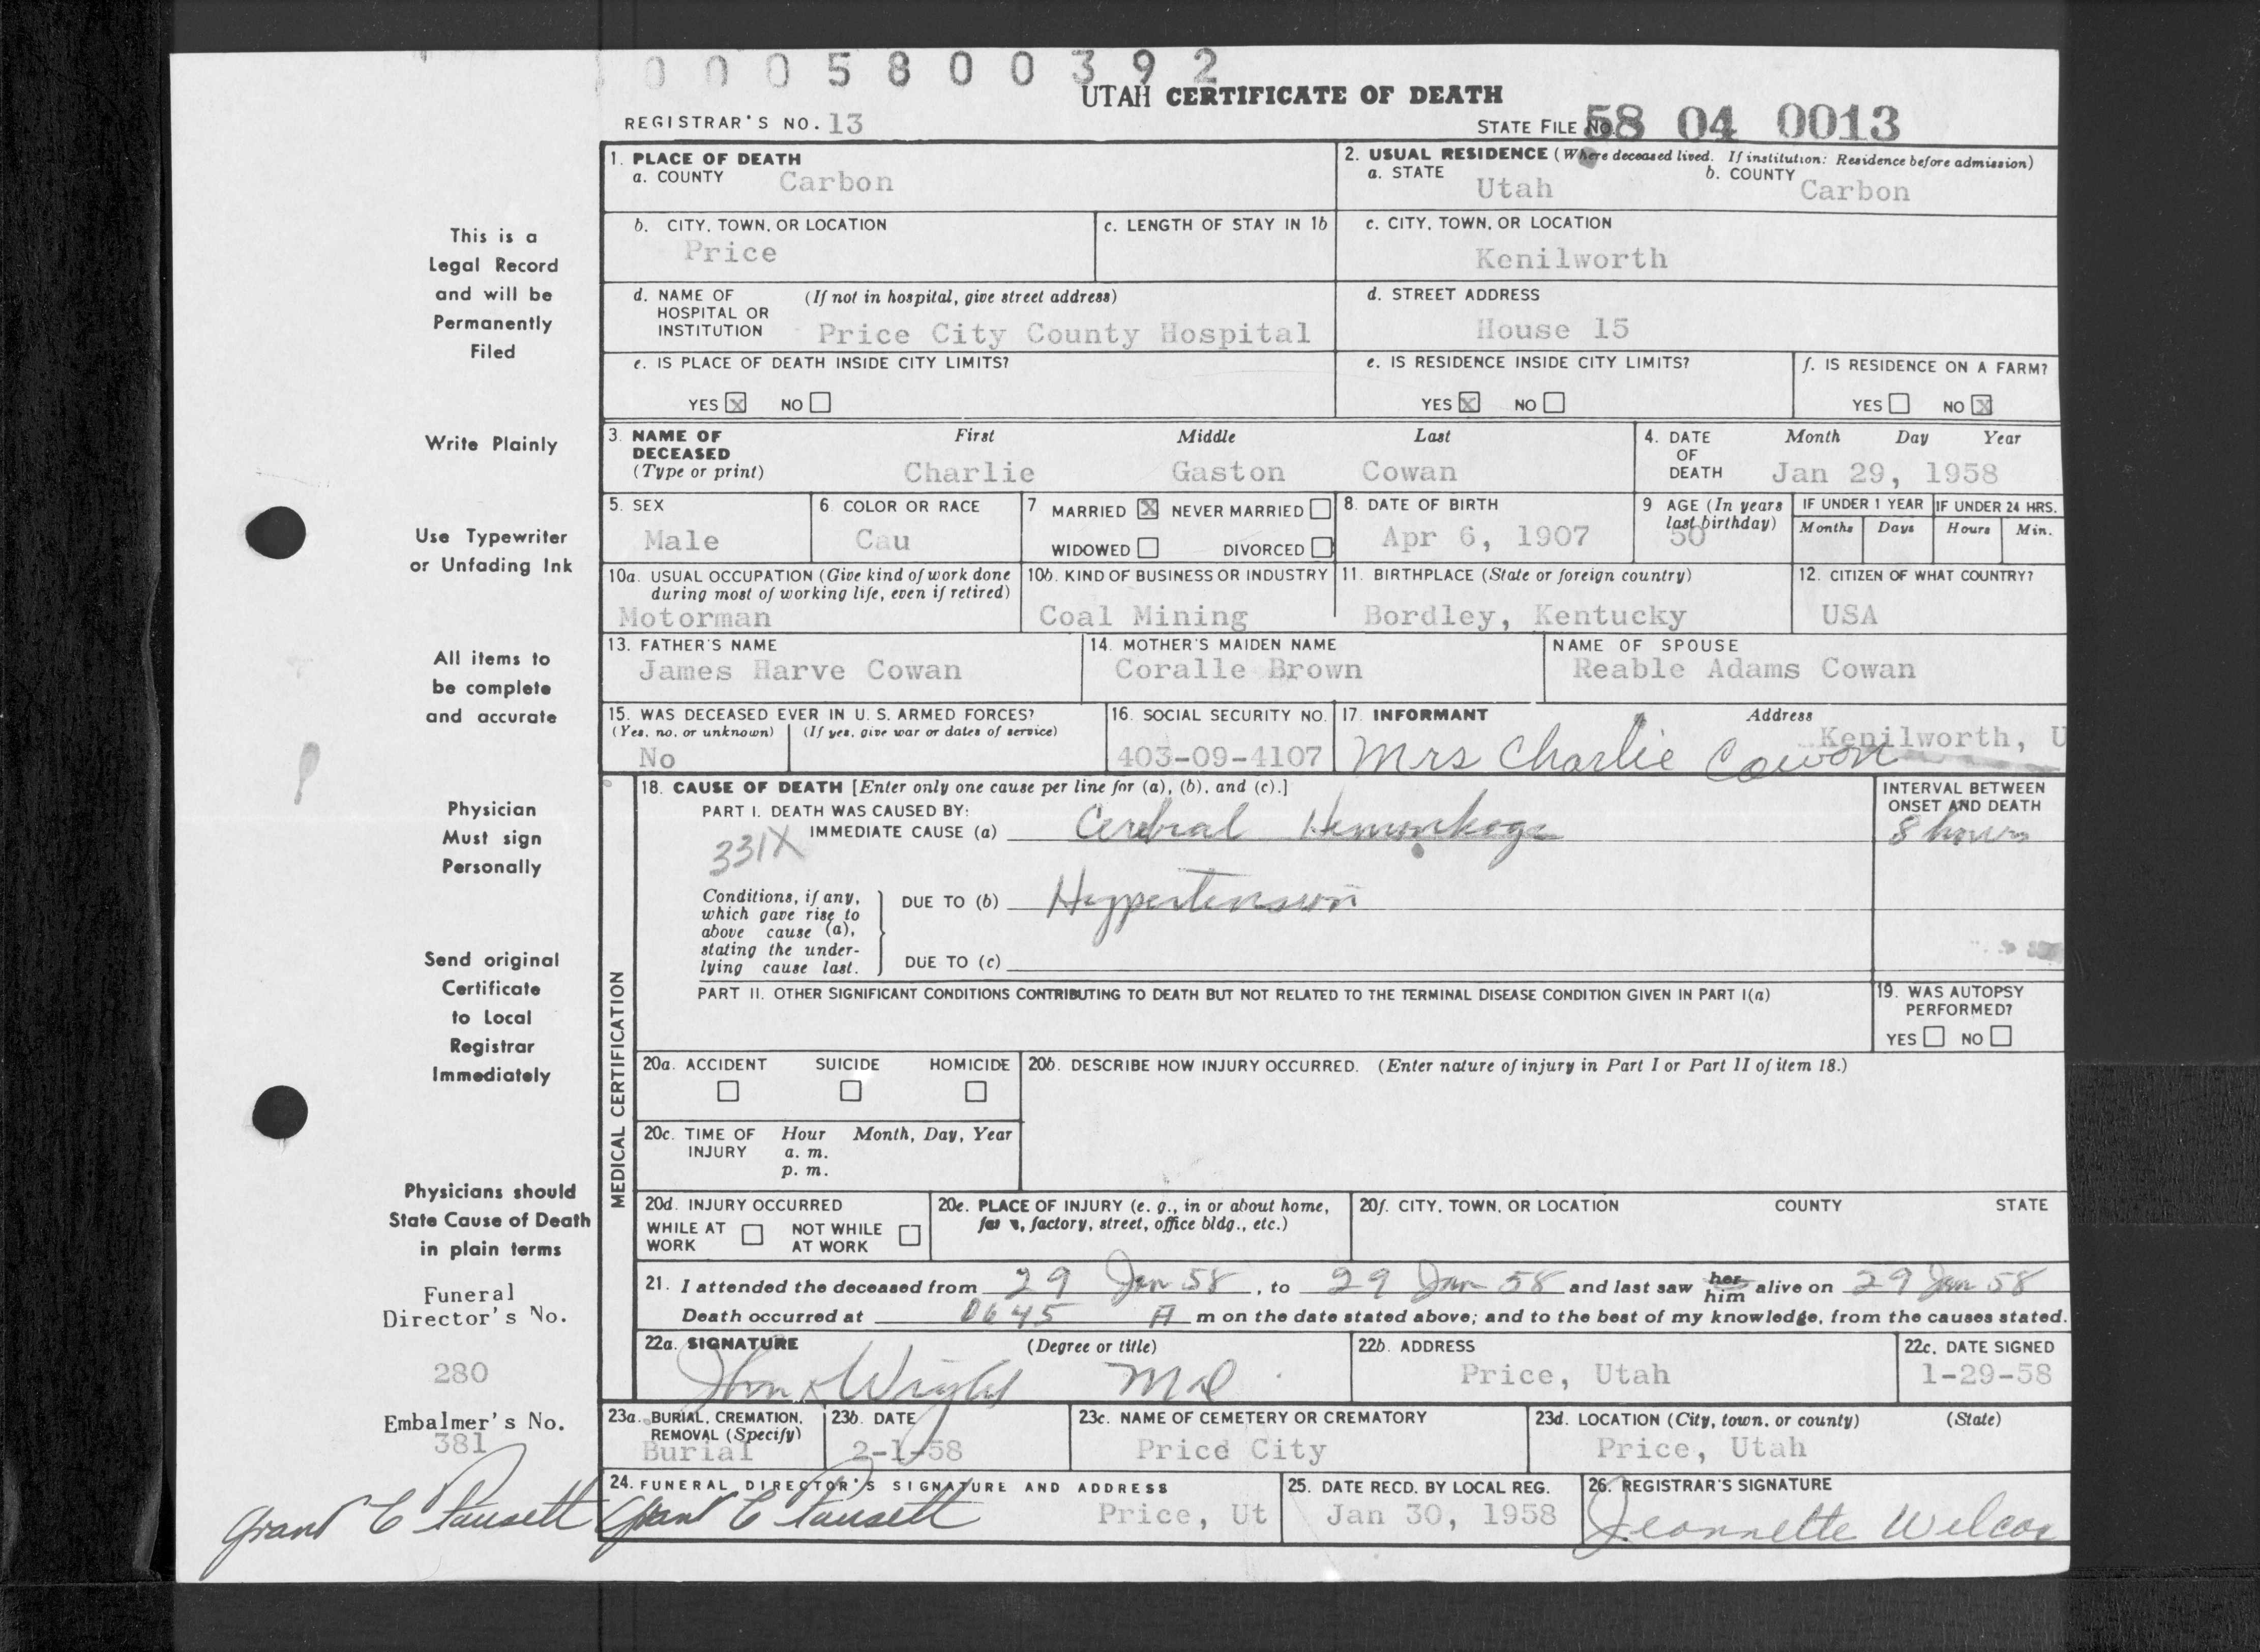 0005800392
UTAH CERTIFICATE OF DEATH
REGISTRAR'S NO. 13
STATE FILE NO. 58 04 0013
This is a
Legal Record
and will be
Permanently
Filed
Write Plainly
Use Typewriter
or Unfading Ink
All items to
be complete
and accurate
Physician
Must sign
Personally
Send original
Certificate
to Local
Registrar
Immediately
Physicians should
State Cause of Death
in plain terms
Funeral
Director's No.
280
Embalmer's No.
381
Grant C Fausett
1. PLACE OF DEATH
a. COUNTY Carbon
2. USUAL RESIDENCE (Where deceased lived. If institution: Residence before admission)
a. STATE Utah b. COUNTY Carbon
b. CITY, TOWN, OR LOCATION
Price
c. LENGTH OF STAY IN 1b
c. CITY, TOWN, OR LOCATION
Kenilworth
d. NAME OF HOSPITAL OR INSTITUTION (If not in hospital, give street address)
Price City County Hospital
d. STREET ADDRESS
House 15
e. IS PLACE OF DEATH INSIDE CITY LIMITS?
YES X NO
e. IS RESIDENCE INSIDE CITY LIMITS?
YES X NO
f. IS RESIDENCE ON A FARM?
YES NO X
3. NAME OF DECEASED (Type or print)
First Middle Last
Charlie Gaston Cowan
4. DATE OF DEATH Month Day Year
Jan 29, 1958
5. SEX
Male
6 COLOR OR RACE
Cau
7 MARRIED X NEVER MARRIED
WIDOWED DIVORCED
8. DATE OF BIRTH
Apr 6, 1907
9 AGE (In years last birthday)
50
IF UNDER 1 YEAR
Months Days
IF UNDER 24 HRS.
Hours Min.
10a. USUAL OCCUPATION (Give kind of work done during most of working life, even if retired)
Motorman
10b. KIND OF BUSINESS OR INDUSTRY
Coal Mining
11. BIRTHPLACE (State or foreign country)
Bordley, Kentucky
12. CITIZEN OF WHAT COUNTRY?
USA
13. FATHER'S NAME
James Harve Cowan
14. MOTHER'S MAIDEN NAME
Coralle Brown
NAME OF SPOUSE
Reable Adams Cowan
15. WAS DECEASED EVER IN U. S. ARMED FORCES?
(Yes, no, or unknown) (If yes, give war or dates of service)
No
16. SOCIAL SECURITY NO.
403-09-4107
17. INFORMANT Address
Mrs Charlie Cowan Kenilworth, U
MEDICAL CERTIFICATION
18. CAUSE OF DEATH [Enter only one cause per line for (a), (b), and (c).]
PART I. DEATH WAS CAUSED BY:
IMMEDIATE CAUSE (a) Cerebral Hemorrhage
331X
INTERVAL BETWEEN
ONSET AND DEATH
8 hours
Conditions, if any,
which gave rise to
above cause (a),
stating the under-
lying cause last.
DUE TO (b) Hyppertension
DUE TO (c)
PART II. OTHER SIGNIFICANT CONDITIONS CONTRIBUTING TO DEATH BUT NOT RELATED TO THE TERMINAL DISEASE CONDITION GIVEN IN PART I(a)
19. WAS AUTOPSY
PERFORMED?
YES NO
20a. ACCIDENT SUICIDE HOMICIDE
20b. DESCRIBE HOW INJURY OCCURRED. (Enter nature of injury in Part I or Part II of item 18.)
20c. TIME OF INJURY Hour Month, Day, Year
a. m.
p. m.
20d. INJURY OCCURRED
WHILE AT WORK NOT WHILE AT WORK
20e. PLACE OF INJURY (e. g., in or about home,
factory, street, office bldg., etc.)
20f. CITY, TOWN, OR LOCATION COUNTY STATE
21. I attended the deceased from 29 Jan 58, to 29 Jan 58 and last saw her him alive on 29 Jan 58
Death occurred at 0645 A m on the date stated above; and to the best of my knowledge, from the causes stated.
22a. SIGNATURE (Degree or title)
Wright MD
22b. ADDRESS
Price, Utah
22c. DATE SIGNED
1-29-58
23a. BURIAL, CREMATION,
REMOVAL (Specify)
Burial
23b. DATE
2-1-58
23c. NAME OF CEMETERY OR CREMATORY
Price City
23d. LOCATION (City, town, or county) (State)
Price, Utah
24. FUNERAL DIRECTOR'S SIGNATURE AND ADDRESS
Grant C Fausett Price, Ut
25. DATE RECD. BY LOCAL REG.
Jan 30, 1958
26. REGISTRAR'S SIGNATURE
Jeannette Wilcox